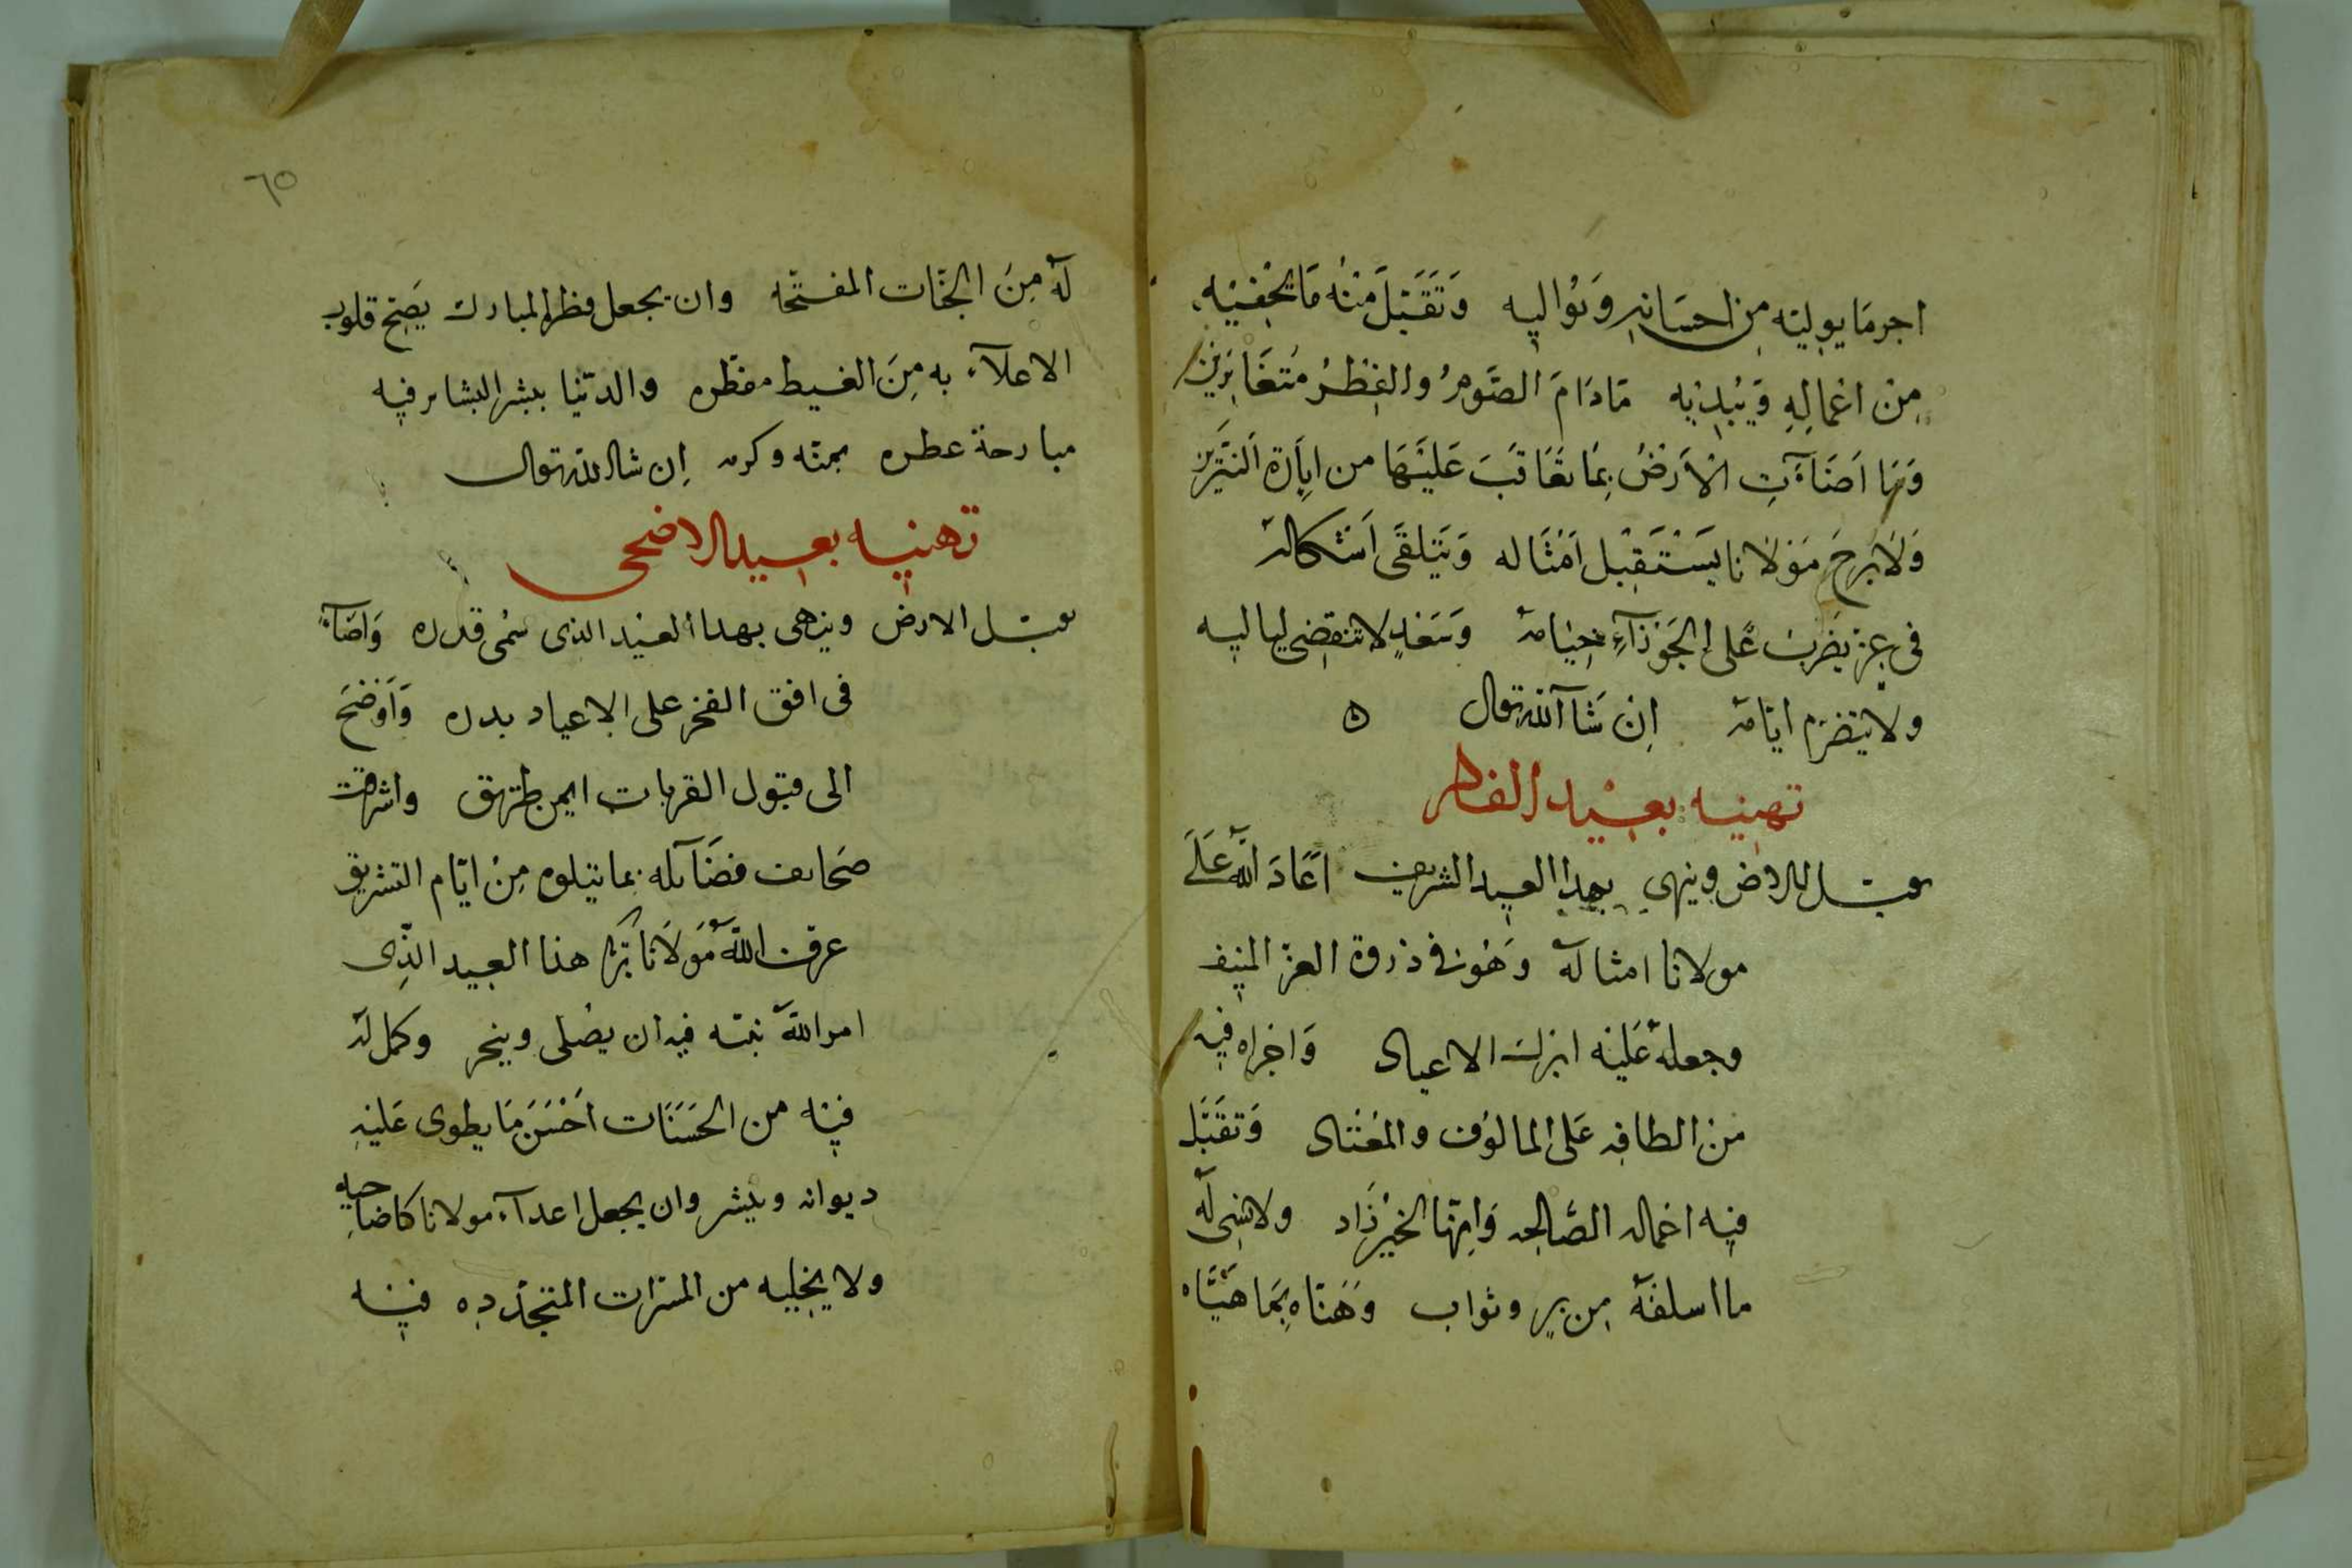 اجر مَا يوليه مِن احسَانهِ وَيُواليه وَتَقَبَّلَ مِنْهُ مَا يخْفيْه
مِن اعْمالِهِ وَيُبْدِيْه مَا دَامَ الصَّومُ والفِطْرُ مُتَغَايِرَيْن
وَمَا اَضَآءَتِ الاَرضُ بِمَا تَعَاقَبَ عَليْهَا من اِيَاةِ النَيِّرَيْن
وَلَا بَرِحَ مَوْلانا يَسْتَقبِل اَمْثَاله وَيَتَلقَّى اَشكالهُ
فى عِزٍ يَضْرِبُ عَلى الجَوْزَآءِ خِيَامهُ وَسَعْدٍ لا تنقضى لياليه
ولا يتصَرّم ايّامهُ اِن شَآ اللّه تعالى ه
تهنيه بعيْد الفطر
يقبّل الارض وينهى بهدا العيد الشريف اعَادَ اللّه عَلَى
مولانا امثاله وَهُوَ فى ذروة العز المنيف
وجعلهُ عَليْه ابرك الاعياد وَاجْراه فيه
مِن الطافه عَلى المالوُف والمعْتاد وَتقَبَّل
فيه اعماله الصَّالحه وَانّها لخيْرُ زَاد ولا نسى لهُ
ما اسلفهُ مِن بِرٍ وثواب وَهَنَّاه بِمَا هَيّأه
٦٥
لهُ مِنَ الجنَّات المفتّحه وان يجعل فطره المبارك يصبح قلوب
الاعدآء به مِنَ الغيط مفطره والدُنيا ببشر البشاير فيه
مبارحة عطره بمنّه وكرمه اِن شا اللّه تعالى
تهنيه بعيد الاضحى
يقبّل الارض وينهى بهدا العيْد الذى سُمى قدره وَاضآءَ
فى افق الفخر على الاعياد بدره وَاَوْضَحَ
الى قبول القربات ايمن طريق واشرقت
صَحايف فضَآئله بما يتلوه مِنْ ايّام التشريق
عرف اللّه مَوْلانَا بركة هذا العيد الّذِى
امر اللّه نبيّه فيه ان يصُلى وينحر وكمل لهُ
فيْه من الحَسَنَات اَحْسَنَ مَا يطوى عَليْهِ
ديوانه وينشر وان يجعل اعدآء مولانا كاضاحيه
ولا يخليه من المسَرّات المتجدّده فيْه